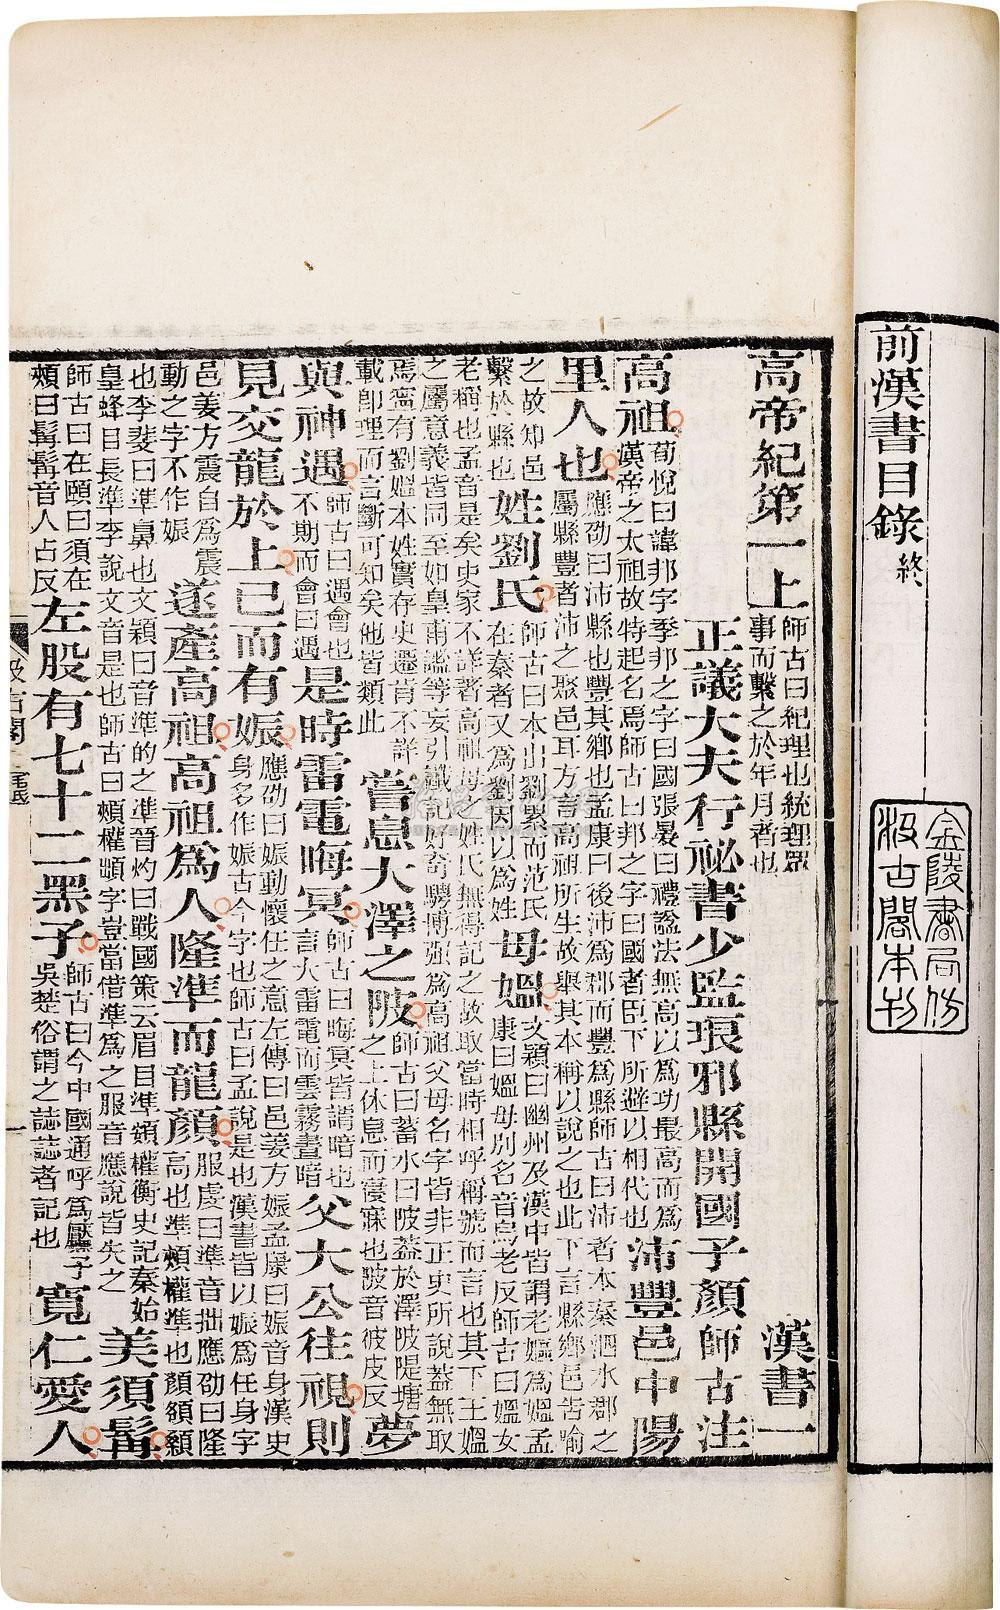 前漢書目錄終
金陵書局仿
汲古閣本刊
高帝紀第一上 師古曰紀理也統理眾事而繫之於年月者也 漢書一
正議大夫行祕書少監琅邪縣開國子顏師古注
高祖 荀悅曰諱邦字季邦之字曰國張晏曰禮諡法無高以為功最高而為漢帝之太祖故特起名焉師古曰邦之字曰國者臣下所避以相代也 沛豐邑中陽
里人也 應劭曰沛縣也豐其鄉也孟康曰後沛為郡而豐為縣師古曰沛者本秦泗水郡之屬縣豐者沛之聚邑耳方言高祖所生故舉其本稱以說之也此下言縣鄉邑告喻
之故知邑繫於縣也 姓劉氏 師古曰本出劉累而范氏在秦者又為劉因以為姓 母媼 文穎曰幽州及漢中皆謂老嫗為媼孟康曰媼母別名音烏老反師古曰媼女
老稱也孟音是矣史家不詳著高祖母之姓氏無得記之故取當時相呼稱號而言也其下王媼之屬意義皆同至如皇甫謐等妄引讖記好奇騁博強為高祖父母名字皆非正史所說蓋無取
焉寧有劉媼本姓實存史遷肯不詳載即理而言斷可知矣他皆類此 嘗息大澤之陂 師古曰蓄水曰陂蓋於澤陂隄塘之上休息而寢寐也陂音彼皮反 夢
與神遇 師古曰遇會也不期而會曰遇 是時雷電晦冥 師古曰晦冥皆謂暗也言大雷電而雲霧晝暗 父大公往視則
見交龍於上已而有娠 應劭曰娠動懷任之意左傳曰邑姜方娠孟康曰娠音身漢史身多作娠古今字也師古曰孟說是也漢書皆以娠為任身字
邑姜方震自為震動之字不作娠 遂產高祖高祖為人隆準而龍顏 服虔曰準音拙應劭曰隆高也準頰權準也顏頟顙
也李斐曰準鼻也文穎曰音準的之準晉灼曰戰國策云眉目準頞權衡史記秦始皇蜂目長準李說文音是也師古曰頰權䪼字豈當借準為之服音應說皆失之 美須髯
師古曰在頤曰須在頰曰髯髯音人占反 左股有七十二黑子 師古曰今中國通呼為黶子吳楚俗謂之誌誌者記也 寬仁愛人
汲古閣 毛氏
一